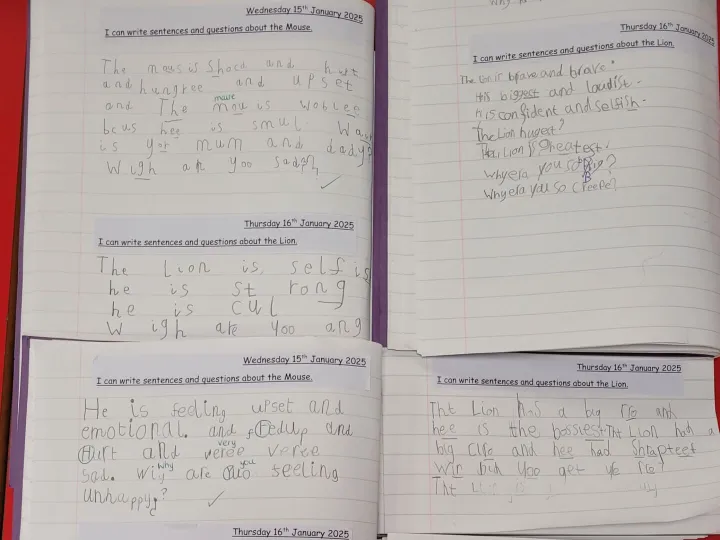 Wednesday 15th January 2025
I can write sentences and questions about the Mouse.
The mous is and hurt
and hungree and upset
mouse
and The mou is
is smul.
is yor mum and dady?
Wigh ar yoo
Thursday 16th January 2025
I can write sentences and questions about the Lion.
The Lion is selfis
he is st rong
he is cul
Wigh are yoo ang
Thursday 16th January 2025
I can write sentences and questions about the Lion.
The lion is brave and brave.
His biggest and loudist.
his confident and selsish.
The Lion hugest?
Lion greatest.
Why era you so Big?
B
Why era you so creepe?
Wednesday 15th January 2025
I can write sentences and questions about the Mouse.
He is feeling upset and
emotional. and fedup and
Hurt and veree veree
very
sad. Wiy are seeling
why you
unhappy?
Thursday 16th January 2025
Thursday 16th January 2025
I can write sentences and questions about the Lion.
Tht Lion has a big and
hee is the bossiest Tht Lion had a
big and hee had
yoo get
Tht